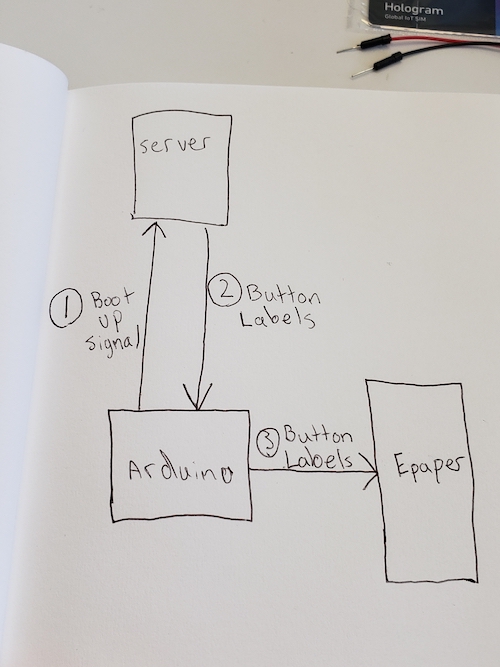 Hologram
Global IoT SIM
server
1 Boot
up
signal
2 Button
Labels
3 Button
Labels
Arduino
Epaper